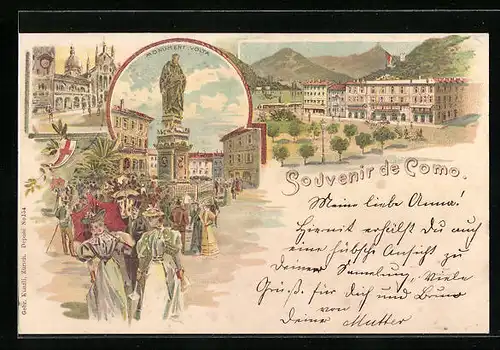 MONUMENT VOLTA
Souvenir de Como.
Meine liebe Anna!
Hiermit erhälst Du auch
eine hübsche Ansicht zu
Deiner Sammlung, Viele
Grüße für dich und Bruno
von
Deine Mutter
Gebr. Künzli, Zürich. Deposé No.